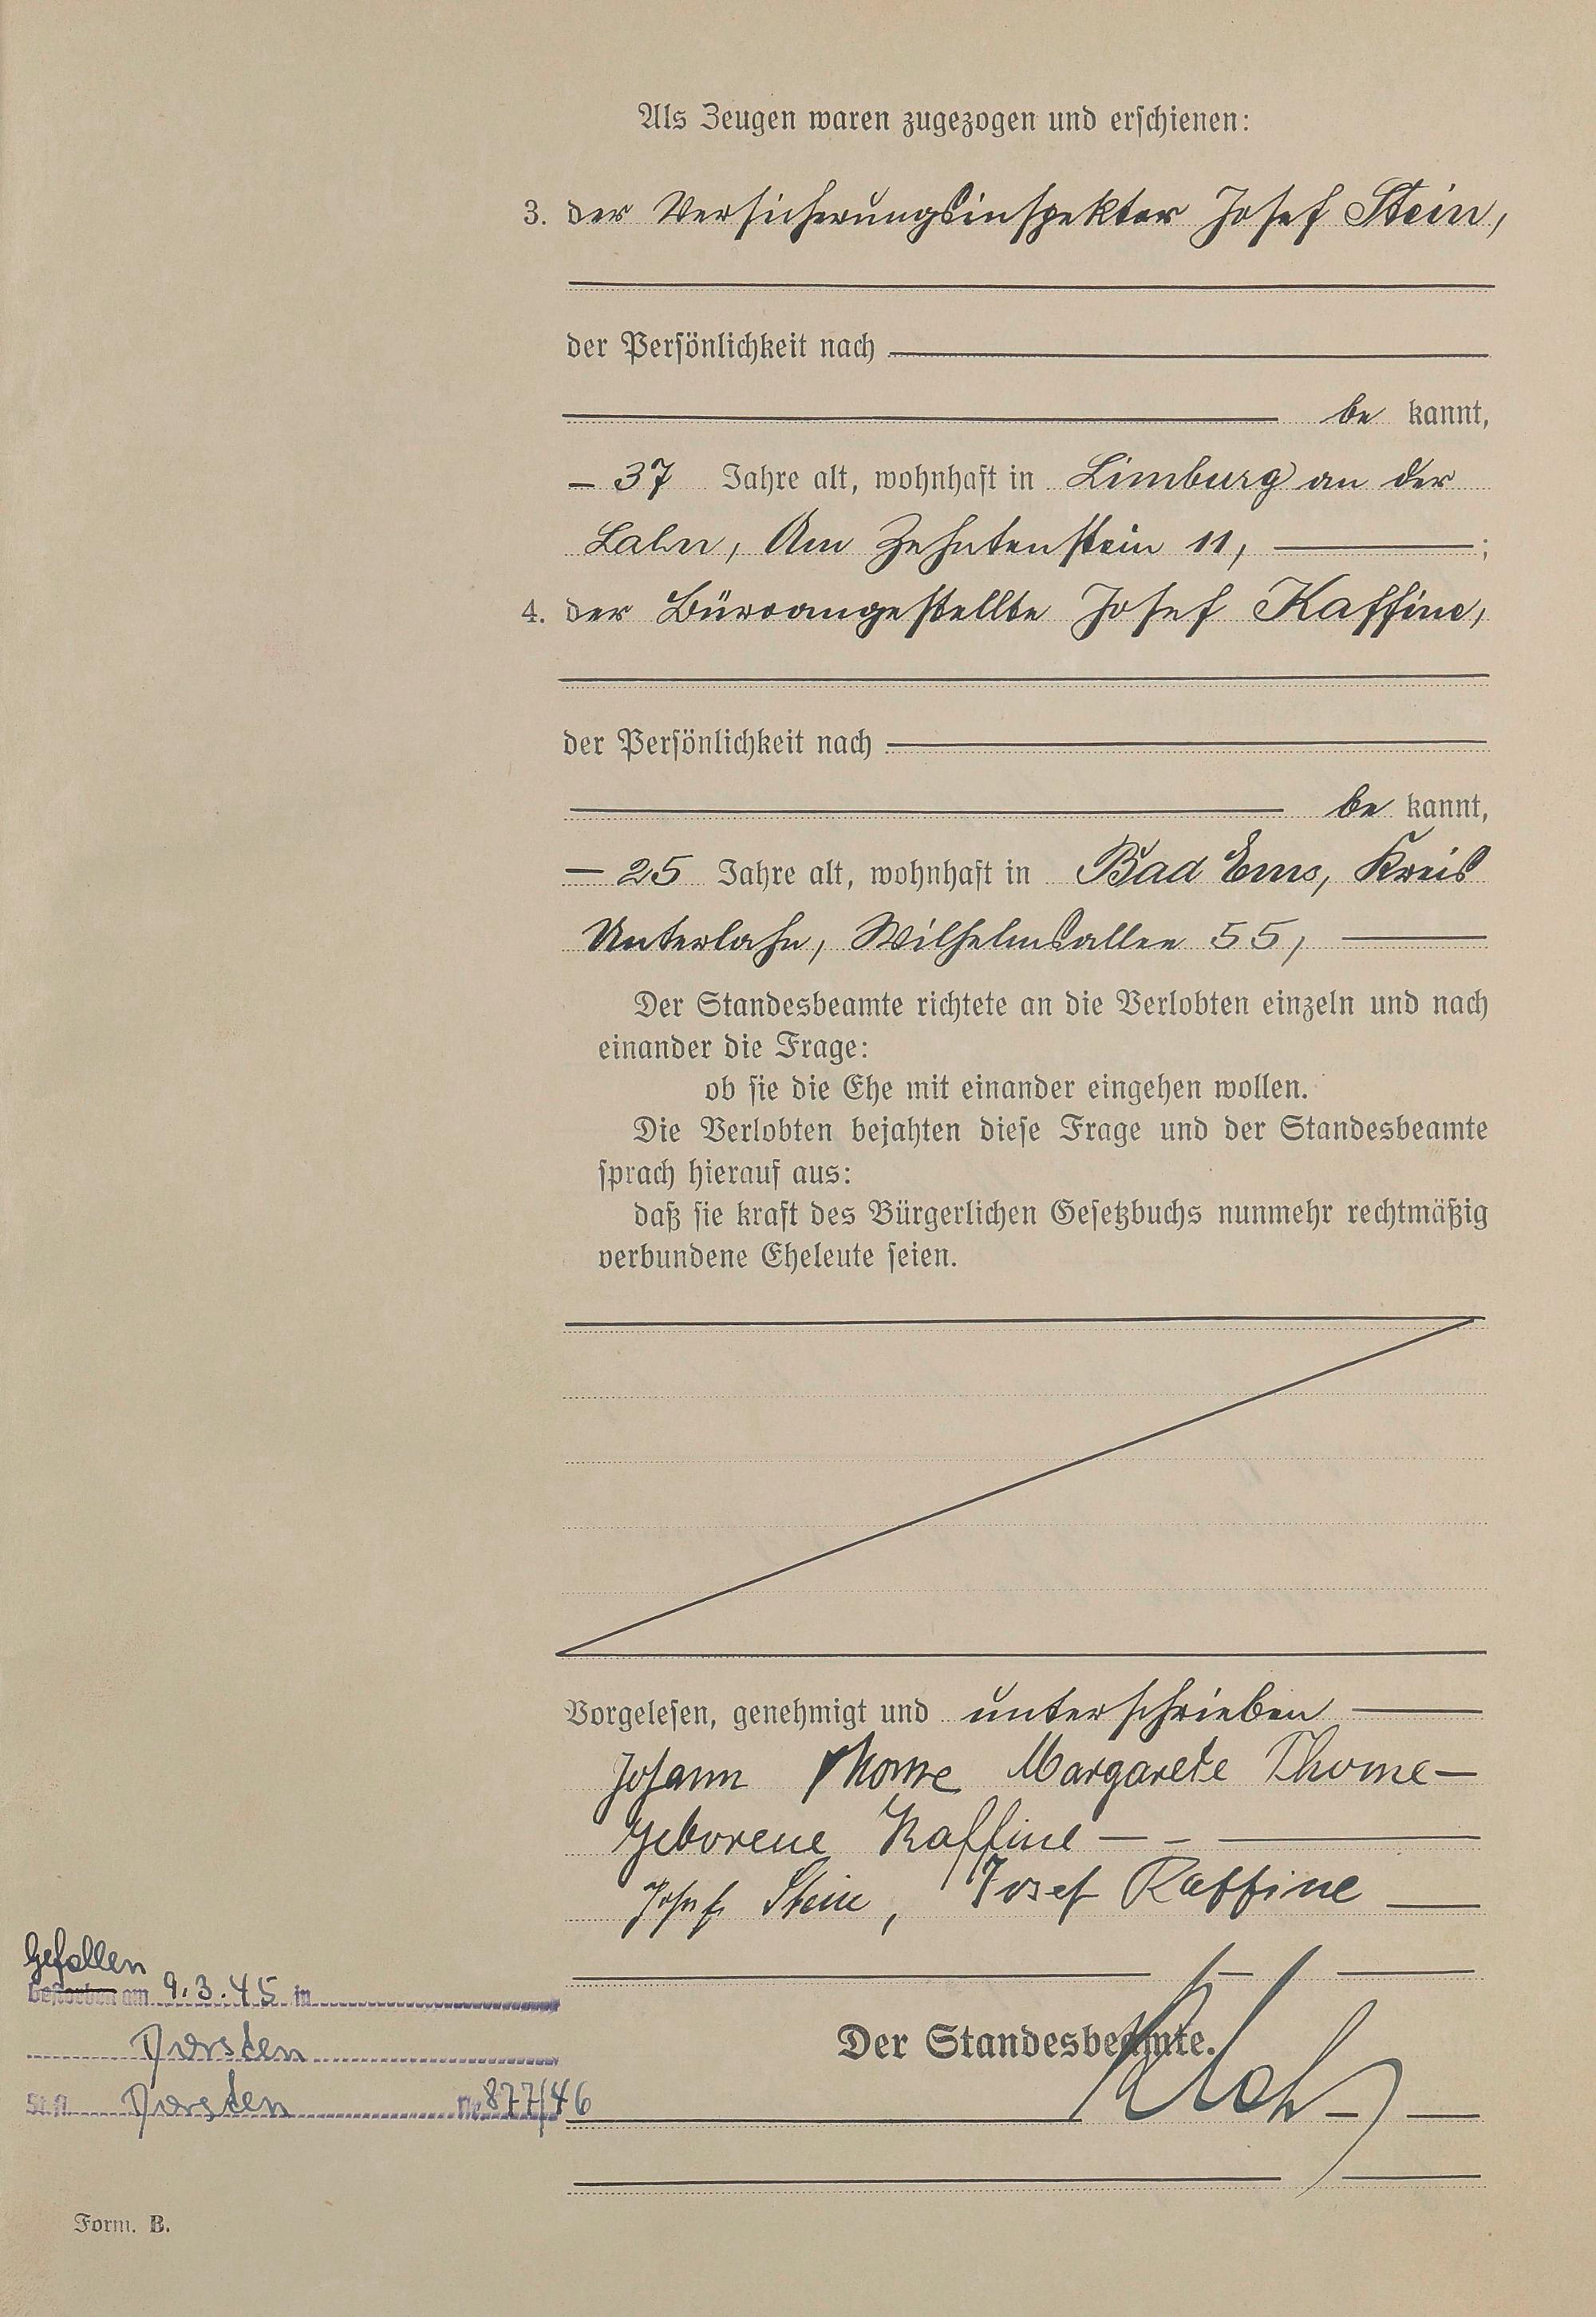 Als Zeugen waren zugezogen und erschienen:
3. der Versicherungsinspektor Josef Stein,
der Persönlichkeit nach
be kannt,
– 37 Jahre alt, wohnhaft in Limburg an der
Lahn, Am Zehntenstein 11, ;
4. der Büroangestellte Josef Kaffine,
der Persönlichkeit nach
be kannt,
– 25 Jahre alt, wohnhaft in Bad Ems, Kreis
Unterlahn, Wilhelmsallee 55,
Der Standesbeamte richtete an die Verlobten einzeln und nach
einander die Frage:
ob sie die Ehe mit einander eingehen wollen.
Die Verlobten bejahten diese Frage und der Standesbeamte
sprach hierauf aus:
daß sie kraft des Bürgerlichen Gesetzbuchs nunmehr rechtmäßig
verbundene Eheleute seien.
Vorgelesen, genehmigt und unterschrieben
Johann Thome Margarete Thome
geborene Kaffine
Josef Stein, Josef Kaffine
Gefallen
Gestorben am 9.3.45 in
Dorsten
Der Standesbeamte.
St.A. Dorsten Nr. 877/46
Form. B.